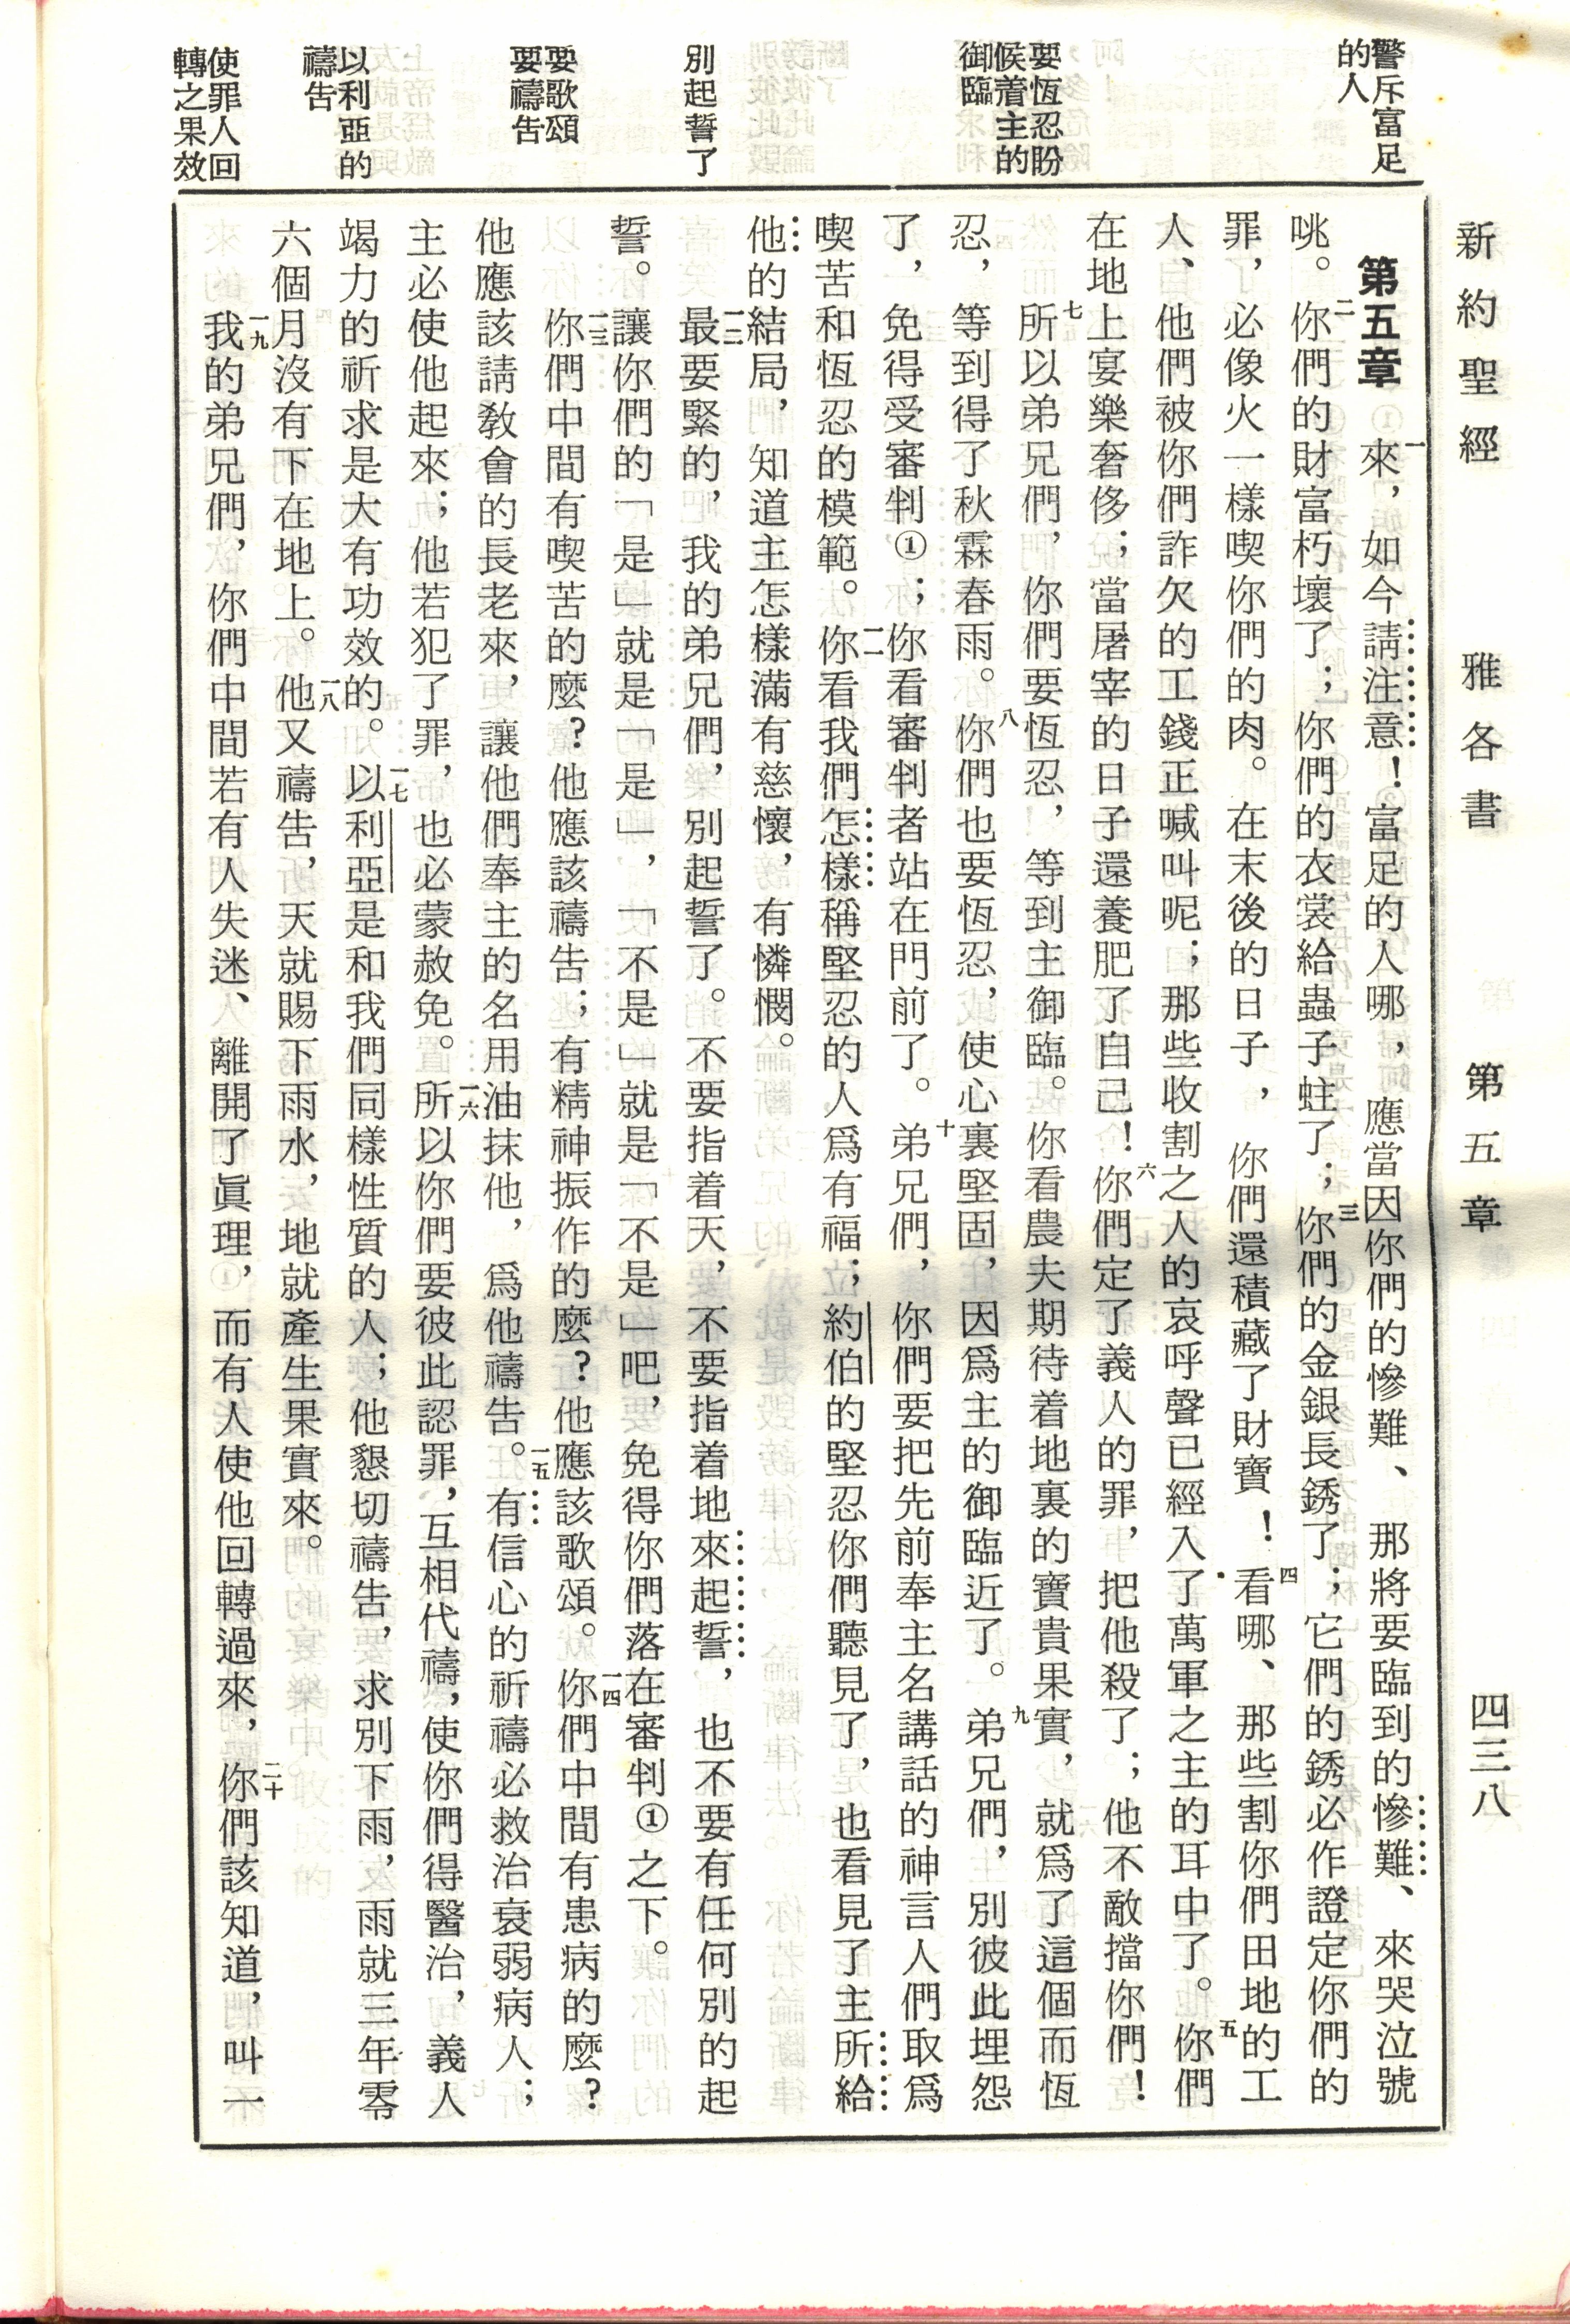 新約聖經　雅各書　第五章　四三八
警斥富足
的人
要恆忍盼
候着主的
御臨
別起誓了
要歌頌
要禱告
以利亞的
禱告
使罪人回
轉之果效
第五章　一來，如今請注意！富足的人哪，應當因你們的慘難、那將要臨到的慘難、來哭泣號
咷。二你們的財富朽壞了；你們的衣裳給蟲子蛀了；三你們的金銀長銹了；它們的銹必作證定你們的
罪，必像火一樣喫你們的肉。在末後的日子，你們還積藏了財寶！四看哪、那些割你們田地的工
人、他們被你們詐欠的工錢正喊叫呢；那些收割之人的哀呼聲已經入了萬軍之主的耳中了。五你們
在地上宴樂奢侈；當屠宰的日子還養肥了自己！六你們定了義人的罪，把他殺了；他不敵擋你們！
七所以弟兄們，你們要恆忍，等到主御臨。你看農夫期待着地裏的寶貴果實，就爲了這個而恆
忍，等到得了秋霖春雨。八你們也要恆忍，使心裏堅固，因爲主的御臨近了。九弟兄們，別彼此埋怨
了，免得受審判①；你看審判者站在門前了。十弟兄們，你們要把先前奉主名講話的神言人們取爲
喫苦和恆忍的模範。一一你看我們怎樣稱堅忍的人爲有福；約伯的堅忍你們聽見了，也看見了主所給
他的結局，知道主怎樣滿有慈懷，有憐憫。
一二最要緊的，我的弟兄們，別起誓了。不要指着天，不要指着地來起誓，也不要有任何別的起
誓。讓你們的「是」就是「是」，「不是」就是「不是」吧，免得你們落在審判①之下。
一三你們中間有喫苦的麼？他應該禱告；有精神振作的麼？他應該歌頌。一四你們中間有患病的麼？
他應該請教會的長老來，讓他們奉主的名用油抹他，爲他禱告。一五有信心的祈禱必救治衰弱病人；
主必使他起來；他若犯了罪，也必蒙赦免。一六所以你們要彼此認罪，互相代禱，使你們得醫治，義人
竭力的祈求是大有功效的。一七以利亞是和我們同樣性質的人；他懇切禱告，求別下雨，雨就三年零
六個月沒有下在地上。一八他又禱告，天就賜下雨水，地就產生果實來。
一九我的弟兄們，你們中間若有人失迷、離開了眞理，而有人使他回轉過來，二十你們該知道，叫一